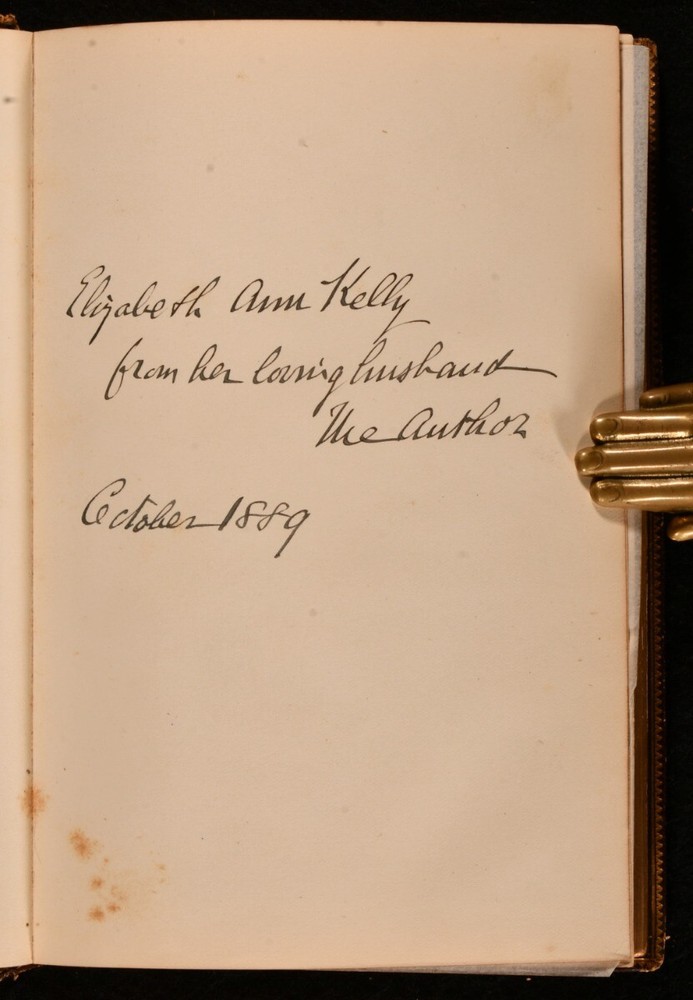 Elizabeth Ann Kelly
from her loving husband
The Author
October 1889